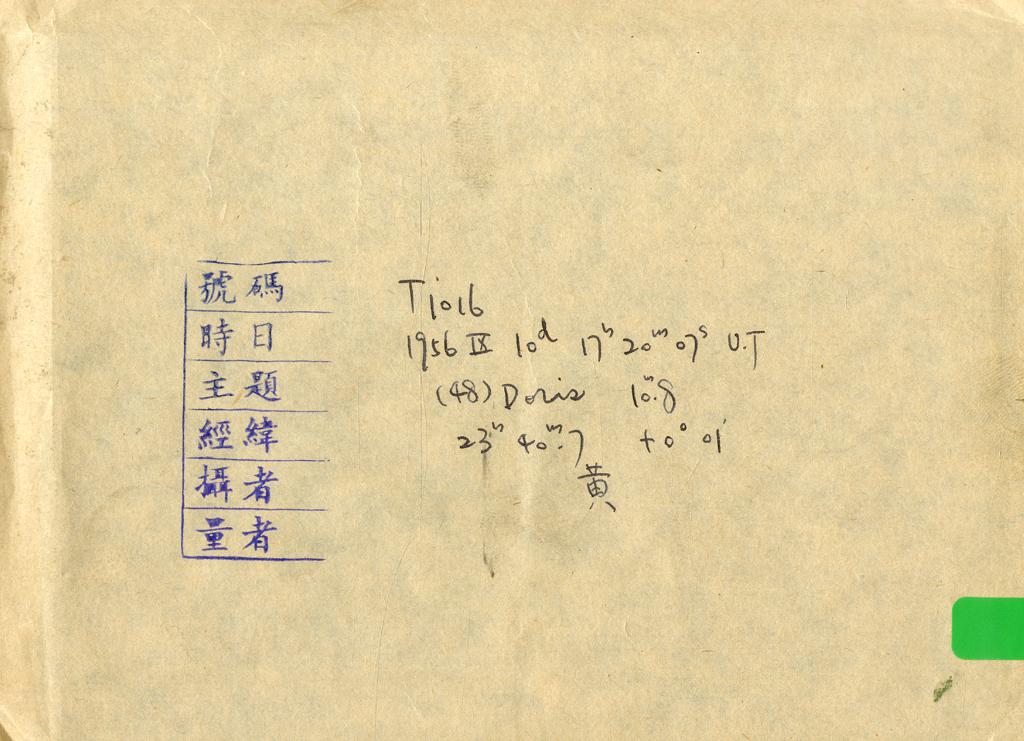 號碼 T1016
時日 1956 IX 10ᵈ 17ʰ 20ᵐ 07ˢ U.T
主題 (48) Doris 10ᵐ.8
經緯 23ʰ 40ᵐ.7 +0° 01'
攝者 黄
量者